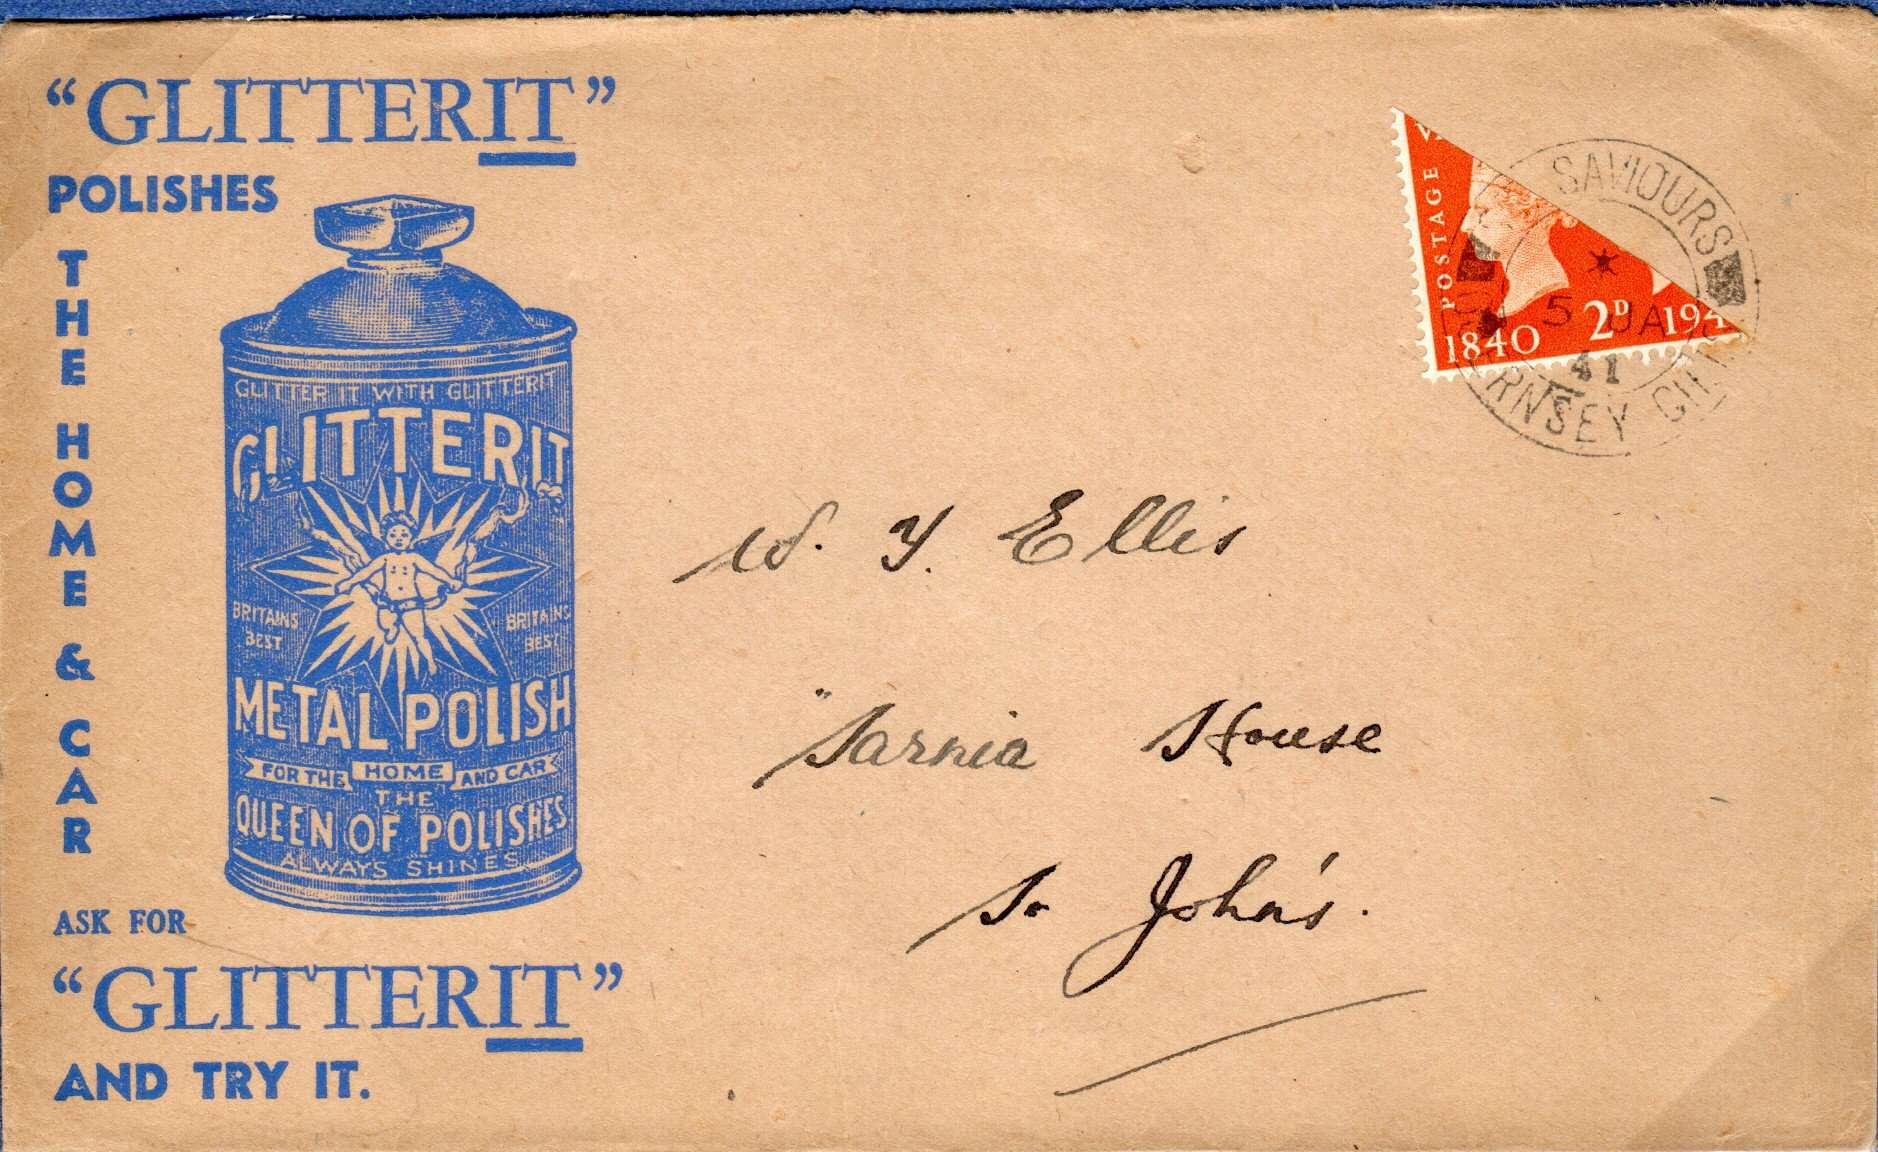 “GLITTERIT”
POLISHES
THE HOME & CAR
GLITTER IT WITH GLITTERIT
GLITTERIT
BRITAINS BEST
BRITAINS BEST
METAL POLISH
FOR THE HOME AND CAR
THE
QUEEN OF POLISHES
ALWAYS SHINES
ASK FOR
“GLITTERIT”
AND TRY IT.
POSTAGE
1840 2D 194
SAVIOURS
5 JA
41
ERNSEY
W. Y. Ellis
"Sarnia House
St John's.